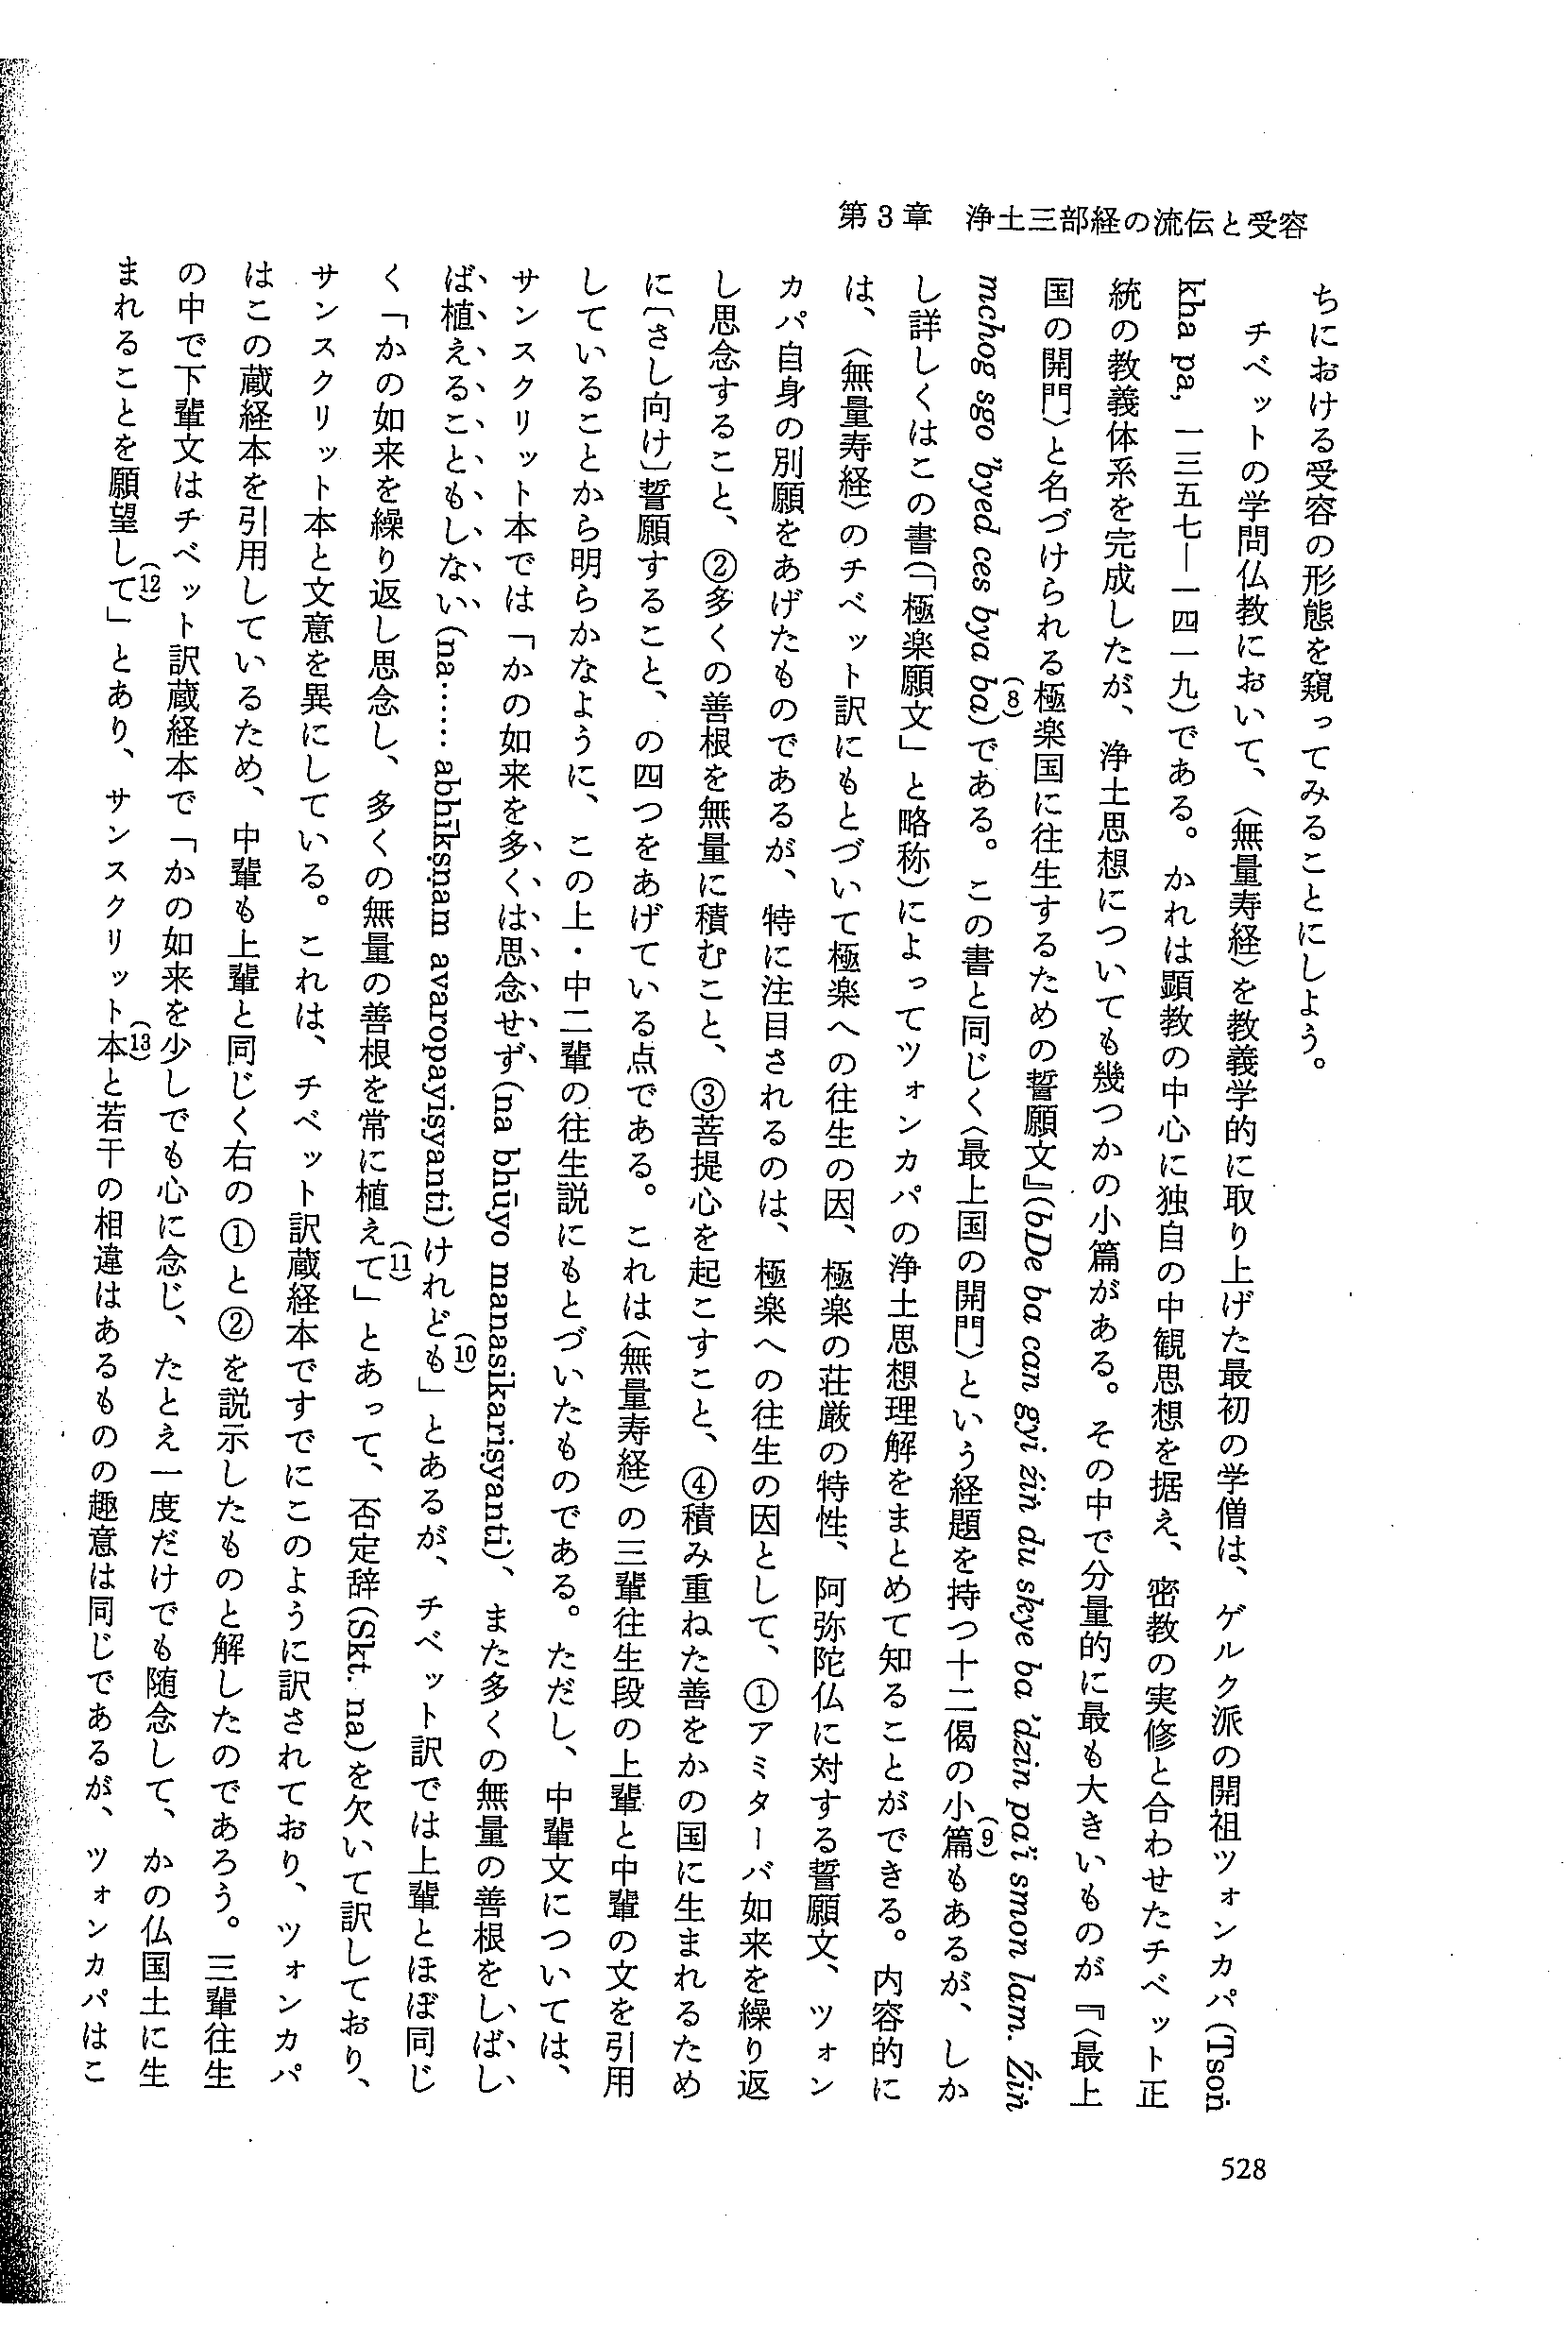 第3章　浄土三部経の流伝と受容
ちにおける受容の形態を窺ってみることにしよう。
　チベットの学問仏教において、〈無量寿経〉を教義学的に取り上げた最初の学僧は、ゲルク派の開祖ツォンカパ(Tsoṅ
kha pa, 一三五七―一四一九)である。かれは顕教の中心に独自の中観思想を据え、密教の実修と合わせたチベット正
統の教義体系を完成したが、浄土思想についても幾つかの小篇がある。その中で分量的に最も大きいものが『〈最上
国の開門〉と名づけられる極楽国に往生するための誓願文』(bDe ba can gyi źiṅ du skye ba 'dzin pa'i smon lam. Źiṅ
mchog sgo 'byed ces bya ba)(8)である。この書と同じく〈最上国の開門〉という経題を持つ十二偈の小篇(9)もあるが、しか
し詳しくはこの書(「極楽願文」と略称)によってツォンカパの浄土思想理解をまとめて知ることができる。内容的に
は、〈無量寿経〉のチベット訳にもとづいて極楽への往生の因、極楽の荘厳の特性、阿弥陀仏に対する誓願文、ツォン
カパ自身の別願をあげたものであるが、特に注目されるのは、極楽への往生の因として、①アミターバ如来を繰り返
し思念すること、②多くの善根を無量に積むこと、③菩提心を起こすこと、④積み重ねた善をかの国に生まれるため
に〔さし向け〕誓願すること、の四つをあげている点である。これは〈無量寿経〉の三輩往生段の上輩と中輩の文を引用
していることから明らかなように、この上・中二輩の往生説にもとづいたものである。ただし、中輩文については、
サンスクリット本では「かの如来を多くは思念せず(na bhūyo manasikariṣyanti)、また多くの無量の善根をしばし
ば植えることもしない(na…… abhīkṣṇam avaropayiṣyanti)けれども(10)」とあるが、チベット訳では上輩とほぼ同じ
く「かの如来を繰り返し思念し、多くの無量の善根を常に植えて(11)」とあって、否定辞(Skt. na)を欠いて訳しており、
サンスクリット本と文意を異にしている。これは、チベット訳蔵経本ですでにこのように訳されており、ツォンカパ
はこの蔵経本を引用しているため、中輩も上輩と同じく右の①と②を説示したものと解したのであろう。三輩往生
の中で下輩文はチベット訳蔵経本で「かの如来を少しでも心に念じ、たとえ一度だけでも随念して、かの仏国土に生
まれることを願望して(12)」とあり、サンスクリット本(13)と若干の相違はあるものの趣意は同じであるが、ツォンカパはこ
528